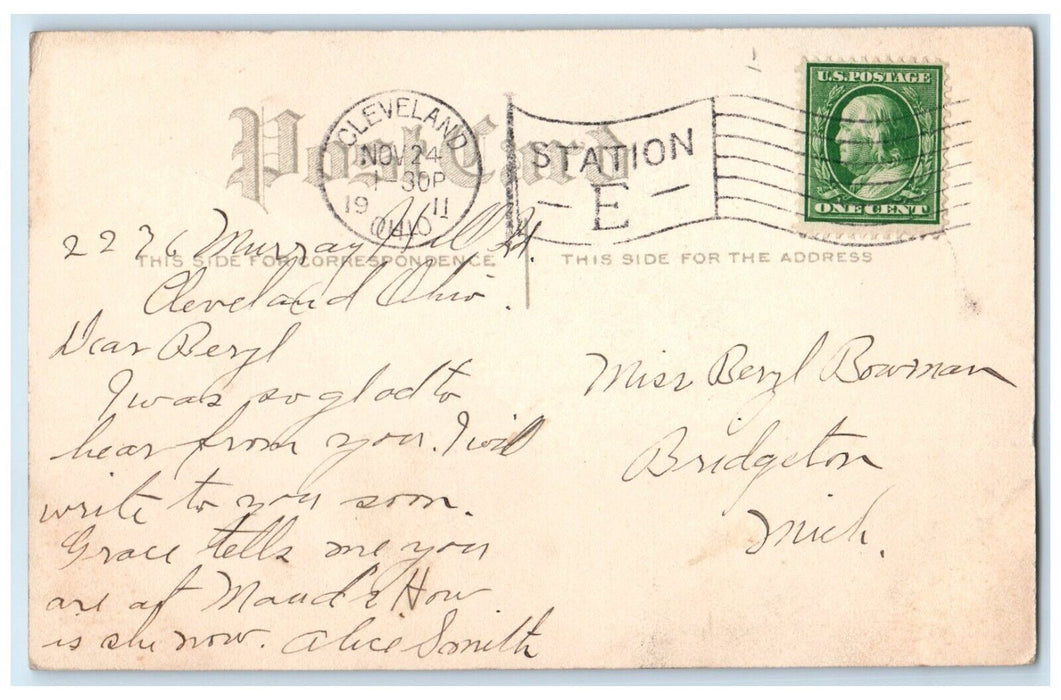 Post Card
CLEVELAND
NOV 24
1-30P
19 11
OHIO
STATION
- E -
U.S. POSTAGE
ONE CENT
THIS SIDE FOR CORRESPONDENCE
THIS SIDE FOR THE ADDRESS
2276 Murray Hill
Cleveland Ohio.
Dear Beryl
I was so glad to
hear from you. I will
write to you soon.
Grace tells me you
are at Maud's How
is she now. Alice Smith
Miss Beryl Bowman
Bridgeton
Mich.